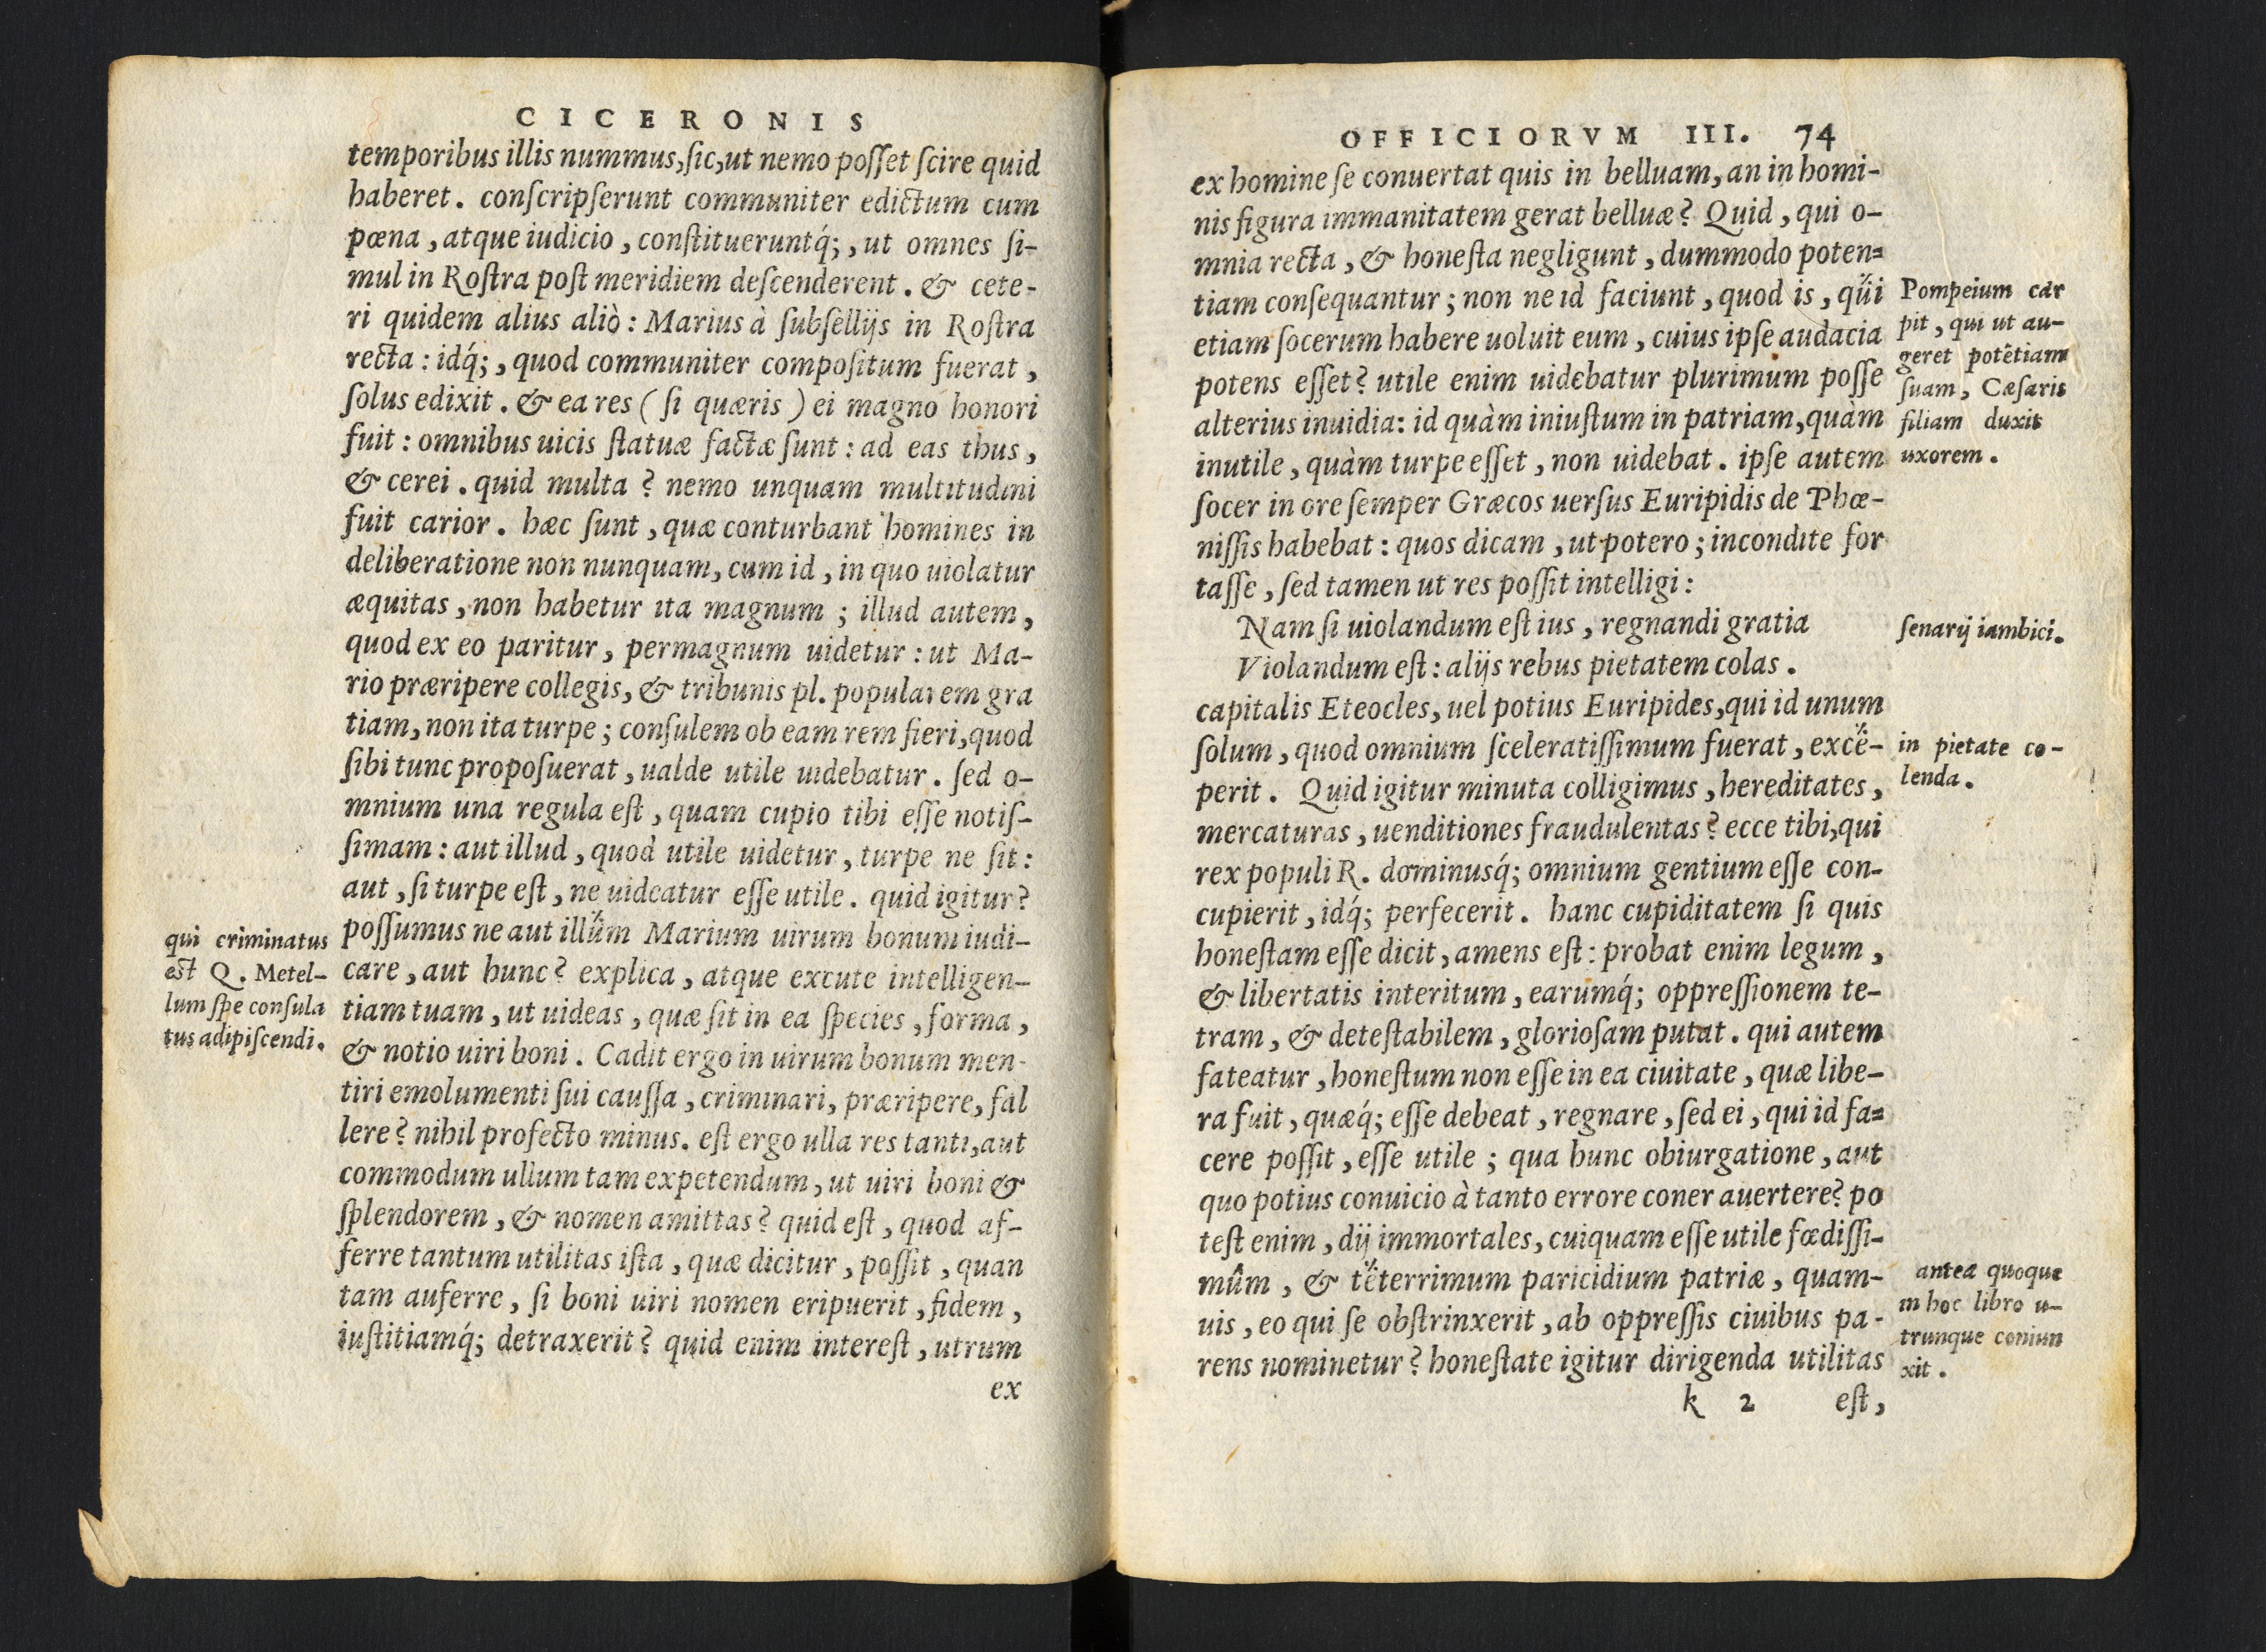 CICERONIS
temporibus illis nummus, ſic, ut nemo poſſet ſcire quid
haberet. conſcripſerunt communiter edictum cum
pœna, atque iudicio, conſtitueruntq́;, ut omnes ſi-
mul in Roſtra poſt meridiem deſcenderent. & cete-
ri quidem alius aliò: Marius à ſubſellijs in Roſtra
recta: idq́;, quod communiter compoſitum fuerat,
ſolus edixit. & ea res (ſi quæris) ei magno honori
fuit: omnibus uicis ſtatuæ factæ ſunt: ad eas thus,
& cerei. quid multa? nemo unquam multitudini
fuit carior. hæc ſunt, quæ conturbant homines in
deliberatione non nunquam, cum id, in quo uiolatur
æquitas, non habetur ita magnum; illud autem,
quod ex eo paritur, permagnum uidetur: ut Ma-
rio præripere collegis, & tribunis pl. popularem gra
tiam, non ita turpe; conſulem ob eam rem fieri, quod
ſibi tunc propoſuerat, ualde utile uidebatur. ſed o-
mnium una regula eſt, quam cupio tibi eſſe notiſ-
ſimam: aut illud, quod utile uidetur, turpe ne ſit:
aut, ſi turpe eſt, ne uideatur eſſe utile. quid igitur?
poſſumus ne aut illum Marium uirum bonum iudi-
care, aut hunc? explica, atque excute intelligen-
tiam tuam, ut uideas, quæ ſit in ea ſpecies, forma,
& notio uiri boni. Cadit ergo in uirum bonum men-
tiri emolumenti ſui cauſſa, criminari, præripere, fal
lere? nihil profecto minus. eſt ergo ulla res tanti, aut
commodum ullum tam expetendum, ut uiri boni &
ſplendorem, & nomen amittas? quid eſt, quod af-
ferre tantum utilitas iſta, quæ dicitur, poſſit, quan
tam auferre, ſi boni uiri nomen eripuerit, fidem,
iuſtitiamq́; detraxerit? quid enim intereſt, utrum
ex
qui criminatus
est Q. Metel-
lum ſpe conſula
tus adipiſcendi.
OFFICIORVM III. 74
ex homine ſe conuertat quis in belluam, an in homi-
nis figura immanitatem gerat belluæ? Quid, qui o-
mnia recta, & honeſta negligunt, dummodo poten=
tiam conſequantur; non ne id faciunt, quod is, qui
etiam ſocerum habere uoluit eum, cuius ipſe audacia
potens eſſet? utile enim uidebatur plurimum poſſe
alterius inuidia: id quàm iniuſtum in patriam, quàm
inutile, quàm turpe eſſet, non uidebat. ipſe autem
ſocer in ore ſemper Græcos uerſus Euripidis de Phœ-
niſſis habebat: quos dicam, ut potero; incondite for
taſſe, ſed tamen ut res poſſit intelligi:
Nam ſi uiolandum eſt ius, regnandi gratia
Violandum eſt: alijs rebus pietatem colas.
capitalis Eteocles, uel potius Euripides, qui id unum
ſolum, quod omnium ſceleratiſſimum fuerat, exce-
perit. Quid igitur minuta colligimus, hereditates,
mercaturas, uenditiones fraudulentas? ecce tibi, qui
rex populi R. dominusq́; omnium gentium eſſe con-
cupierit, idq́; perfecerit. hanc cupiditatem ſi quis
honeſtam eſſe dicit, amens eſt: probat enim legum,
& libertatis interitum, earumq́; oppreſſionem te-
tram, & deteſtabilem, glorioſam putat. qui autem
fateatur, honeſtum non eſſe in ea ciuitate, quæ libe-
ra fuit, quæq́; eſſe debeat, regnare, ſed ei, qui id fa=
cere poſſit, eſſe utile; qua hunc obiurgatione, aut
quo potius conuicio à tanto errore coner auertere? po
teſt enim, dij immortales, cuiquam eſſe utile fœdiſſi-
mûm, & teterrimum paricidium patriæ, quam-
uis, eo qui ſe obſtrinxerit, ab oppreſſis ciuibus pa-
rens nominetur? honeſtate igitur dirigenda utilitas
k 2 eſt,
Pompeium car
pit, qui ut au-
geret potētiam
ſuam, Cæſaris
filiam duxit
uxorem.
ſenarij iambici.
in pietate co-
lenda.
antea quoque
in hoc libro u-
trunque coniun
xit.